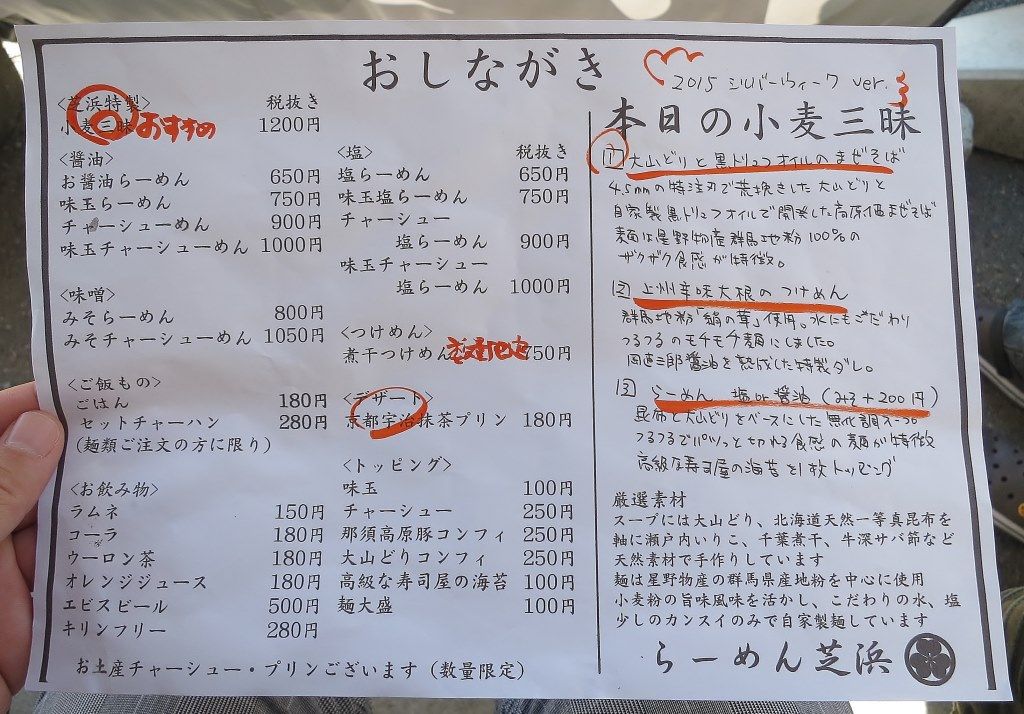 おしながき
2015 シルバーウィーク ver.
<芝浜特製> 税抜き
小麦三昧 おすすめ 1200円
<醤油>
お醤油らーめん 650円
味玉らーめん 750円
チャーシューめん 900円
味玉チャーシューめん 1000円
<味噌>
みそらーめん 800円
みそチャーシューめん 1050円
<ご飯もの>
ごはん 180円
セットチャーハン 280円
(麺類ご注文の方に限り)
<お飲み物>
ラムネ 150円
コーラ 180円
ウーロン茶 180円
オレンジジュース 180円
エビスビール 500円
キリンフリー 280円
<塩> 税抜き
塩らーめん 650円
味玉塩らーめん 750円
チャーシュー
塩らーめん 900円
味玉チャーシュー
塩らーめん 1000円
<つけめん>
煮干つけめん 750円
<デザート>
京都宇治抹茶プリン 180円
<トッピング>
味玉 100円
チャーシュー 250円
那須高原豚コンフィ 250円
大山どりコンフィ 250円
高級な寿司屋の海苔 100円
麺大盛 100円
お土産チャーシュー・プリンございます(数量限定)
本日の小麦三昧
1 大山どりと黒トリュフオイルのまぜそば
4.5mmの特注刃で荒挽きした大山どりと
自家製黒トリュフオイルで開発した高原価まぜそば
麺は星野物産群馬地粉100%の
ザクザク食感が特徴。
2 上州辛味大根のつけめん
群馬地粉「絹の茸」使用。水にもこだわり
つるつるのモチモチ麺にしました。
岡直三郎醤油を熟成した特製ダレ。
3 らーめん 塩or醤油(みそ+200円)
昆布と大山どりをベースにした無化調スープ
つるつるでパツッと切れる食感の麺が特徴
高級な寿司屋の海苔を1枚トッピング
厳選素材
スープには大山どり、北海道天然一等真昆布を
軸に瀬戸内いりこ、千葉煮干、牛深サバ節など
天然素材で手作りしています
麺は星野物産の群馬県産地粉を中心に使用
小麦粉の旨味風味を活かし、こだわりの水、塩
少しのカンスイのみで自家製麺しています
らーめん芝浜